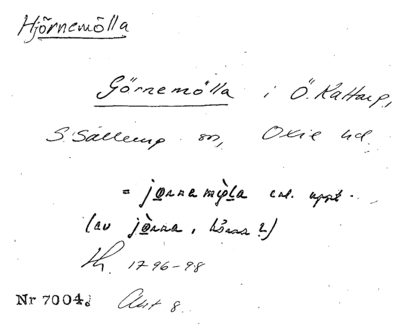 Hjörnemölla
Görnemölla i Ö. Kattarp,
S. Sallerup sn, Oxie hd.
= jọnnamọ̀la enl. uppt.
(av jọ̀nna, hörna?)
1796-98
Nr 7004. Akt 8.